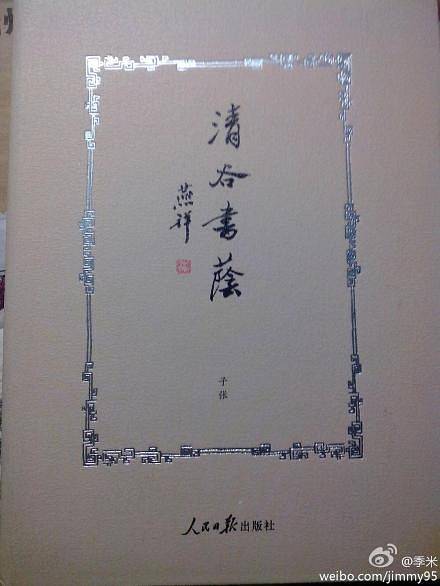 清谷書蔭
燕祥
子张
人民日报出版社
@季米
weibo.com/jimmy95